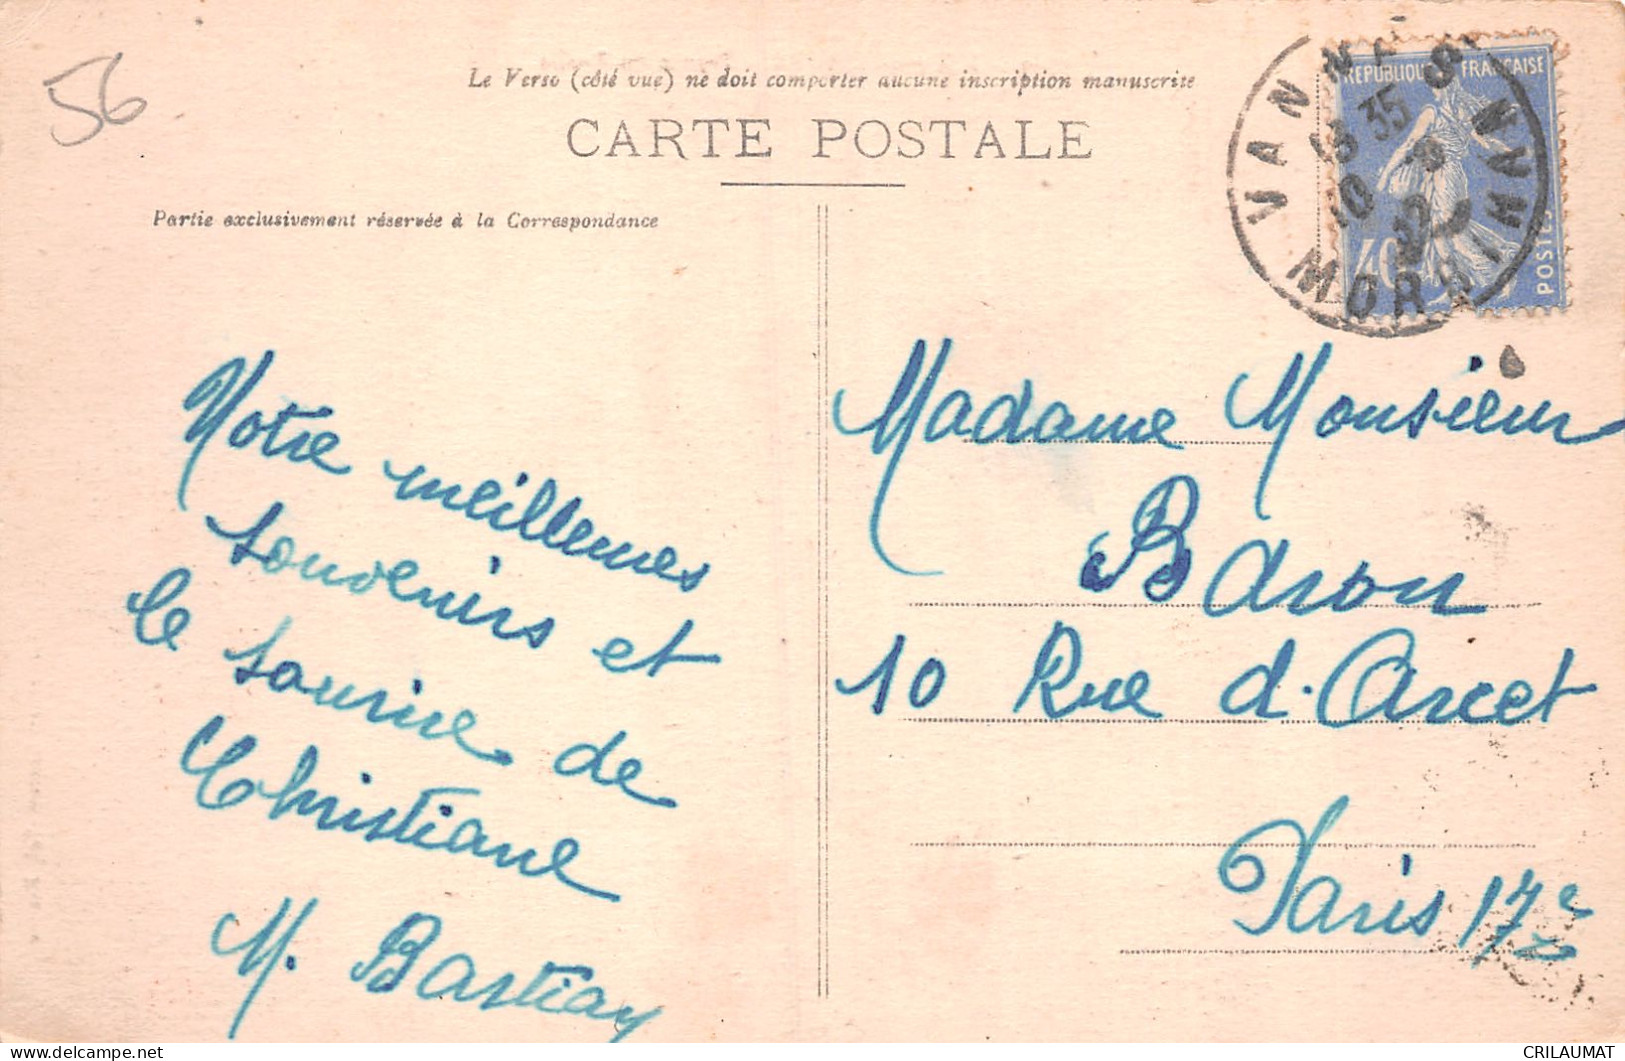 56
Le Verso (côté vue) ne doit comporter aucune inscription manuscrite
CARTE POSTALE
Partie exclusivement réservée à la Correspondance
REPUBLIQUE FRANÇAISE
40
POSTES
VANNES
MORBIHAN
35
10
Notre meilleures
souvenirs et
le sourire de
Christiane
M. Bastiay
Madame Monsieur
Baron
10 Rue d'Arcet
Paris 17e
CRILAUMAT